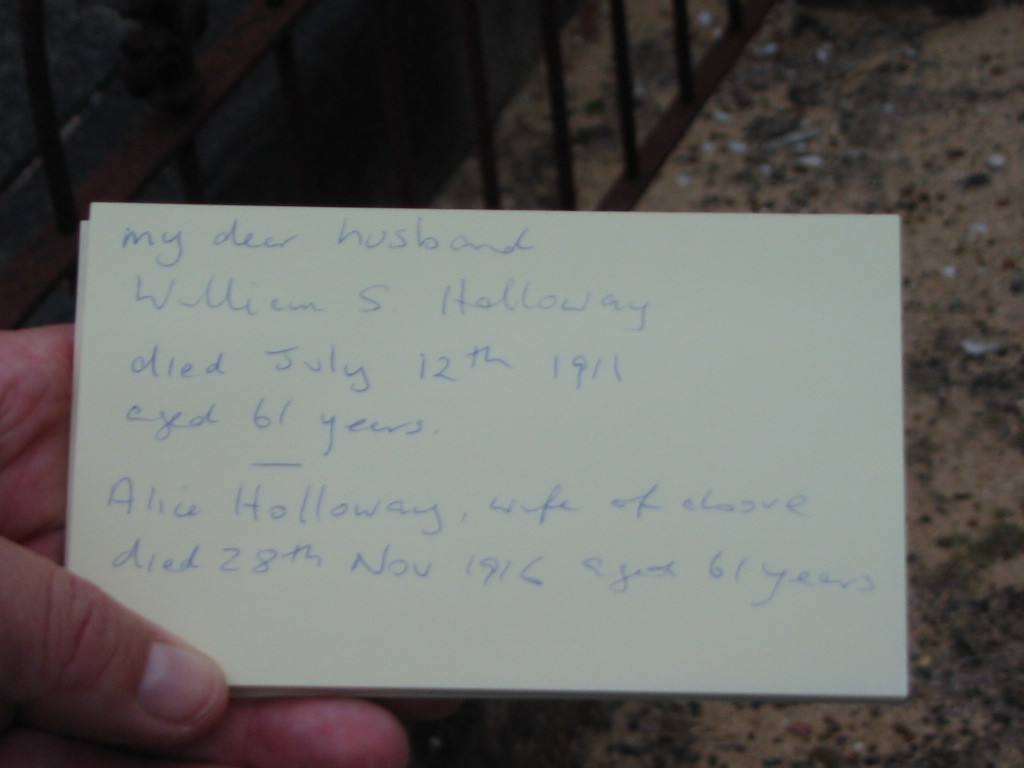 my dear husband
William S. Holloway
died July 12th 1911
aged 61 years.
Alice Holloway, wife of above
died 28th Nov 1916 aged 61 years